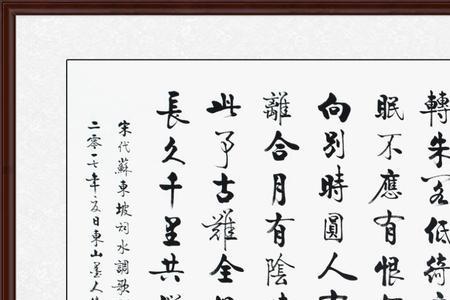 轉朱閣低綺
眠不應有恨
向別時圓人有
離合月有陰
此事古難全
長久千里共
宋代蘇東坡詞水調歌
二零一七年夏日東山墨人